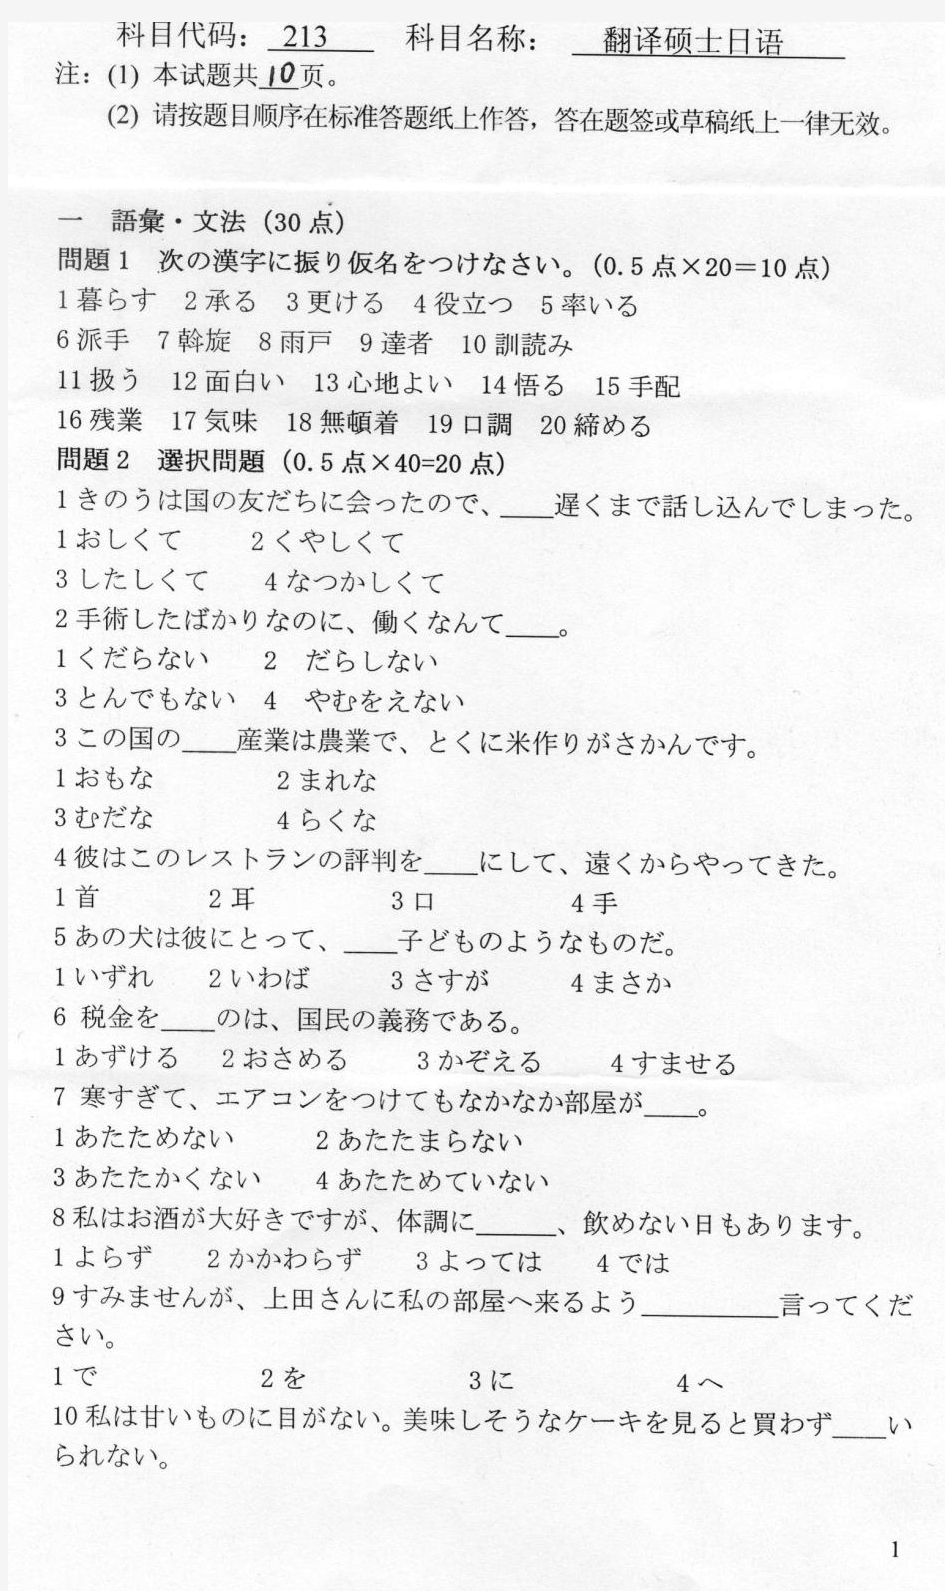 科目代码： 213 科目名称： 翻译硕士日语
注：(1) 本试题共10页。
(2) 请按题目顺序在标准答题纸上作答，答在题签或草稿纸上一律无效。
一 語彙・文法（30点）
問題1 次の漢字に振り仮名をつけなさい。（0.5点×20＝10点）
1暮らす 2承る 3更ける 4役立つ 5率いる
6派手 7斡旋 8雨戸 9達者 10訓読み
11扱う 12面白い 13心地よい 14悟る 15手配
16残業 17気味 18無頓着 19口調 20締める
問題2 選択問題（0.5点×40=20点）
1きのうは国の友だちに会ったので、____遅くまで話し込んでしまった。
1おしくて 2くやしくて
3したしくて 4なつかしくて
2手術したばかりなのに、働くなんて____。
1くだらない 2 だらしない
3とんでもない 4 やむをえない
3この国の____産業は農業で、とくに米作りがさかんです。
1おもな 2まれな
3むだな 4らくな
4彼はこのレストランの評判を____にして、遠くからやってきた。
1首 2耳 3口 4手
5あの犬は彼にとって、____子どものようなものだ。
1いずれ 2いわば 3さすが 4まさか
6 税金を____のは、国民の義務である。
1あずける 2おさめる 3かぞえる 4すませる
7 寒すぎて、エアコンをつけてもなかなか部屋が____。
1あたためない 2あたたまらない
3あたたかくない 4あたためていない
8私はお酒が大好きですが、体調に______、飲めない日もあります。
1よらず 2かかわらず 3よっては 4では
9すみませんが、上田さんに私の部屋へ来るよう__________言ってくだ
さい。
1で 2を 3に 4へ
10私は甘いものに目がない。美味しそうなケーキを見ると買わず____い
られない。
1